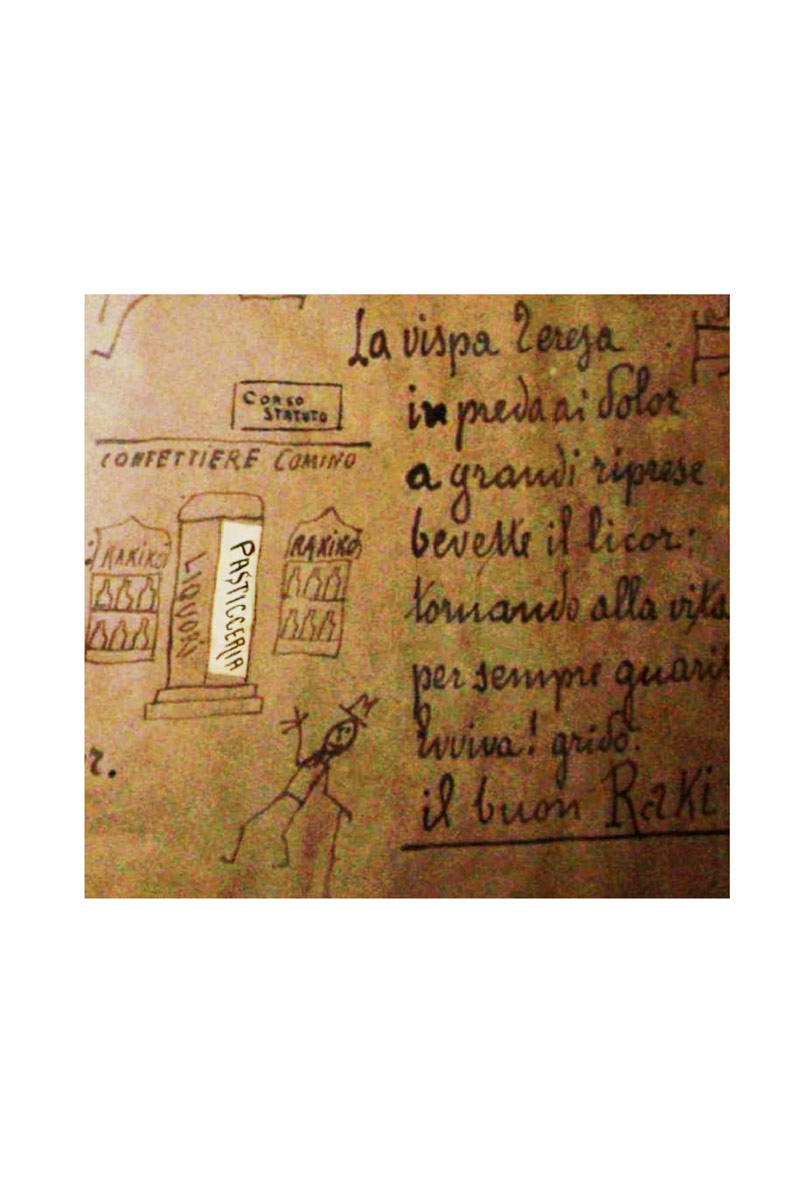 CORSO
STATUTO
CONFETTIERE COMINO
RAKIKÒ
LIQUORI
PASTICCERIA
RAKIKÒ
r.
La vispa Teresa
in preda ai dolor
a grandi riprese
bevette il licor;
tornando alla vita
per sempre guarit
Evviva! gridò:
il buon Raki